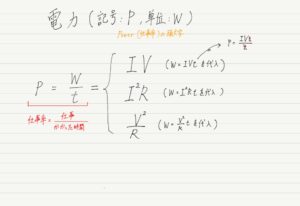 電力 (記号: P, 単位: W)
Power (仕事率) の頭文字
P = IVt/t
P = W/t = { IV (W = IVt を代入)
I²R (W = I²Rt を代入)
V²/R (W = V²/R t を代入)
仕事率 = 仕事/かかった時間